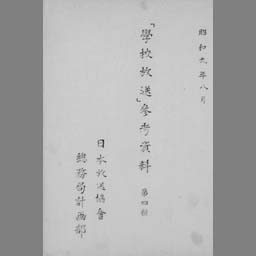 昭和九年八月
「學校放送」參考資料 第四輯
日本放送協會
總務局計画部